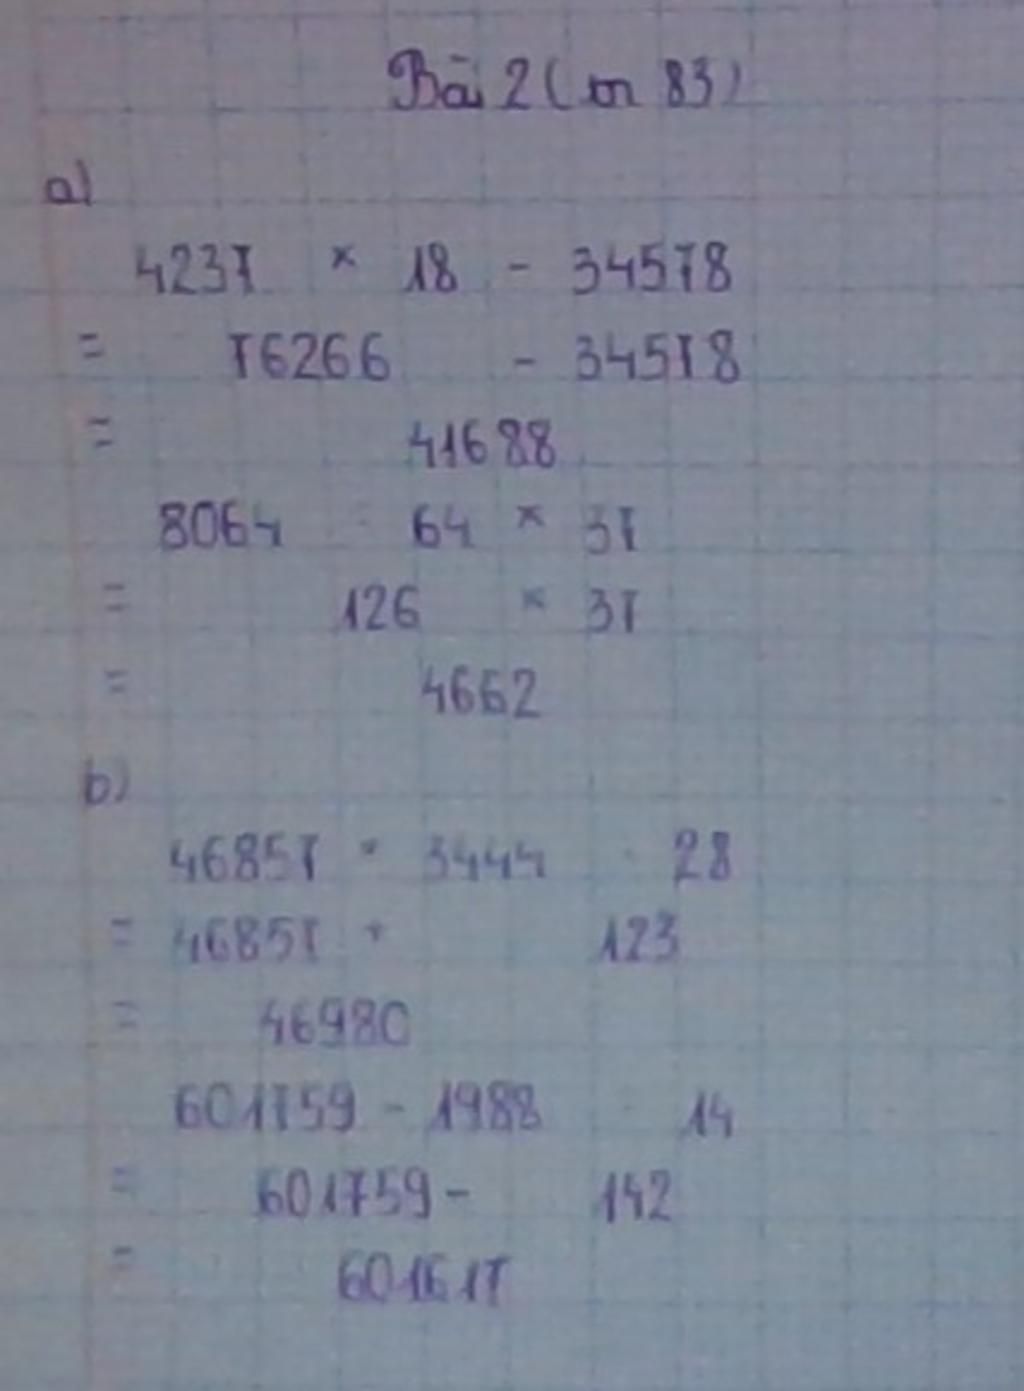 Bài 2 (tr 83)
a)
4237 × 18 - 34578
= 76266 - 34578
= 41688
8064 : 64 × 37
= 126 × 37
= 4662
b)
46857 + 3444 : 28
= 46857 + 123
= 46980
601759 - 1988 : 14
= 601759 - 142
= 601617